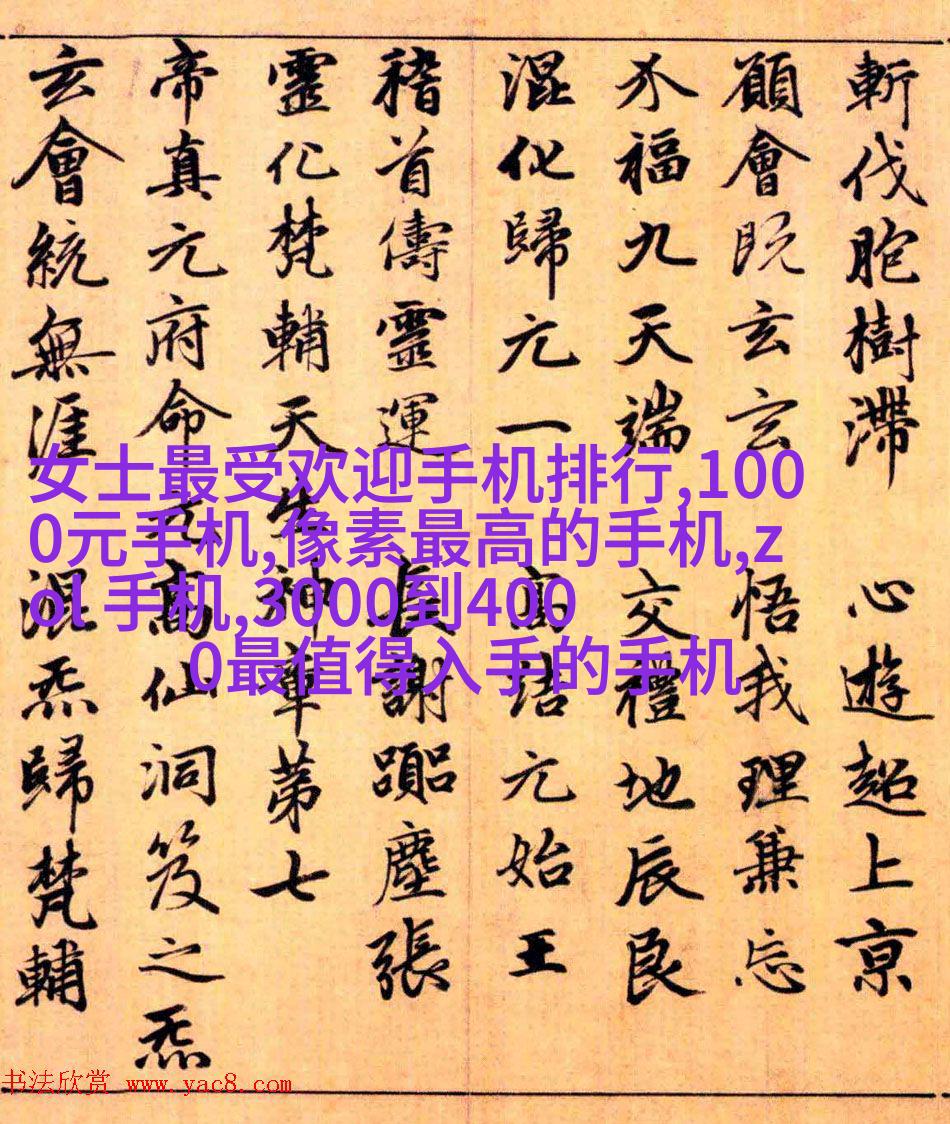 斬伐胞樹滯 心遊超上亰
願會既玄玄 悟我理兼忘
介福九天端 交禮地辰良
混化歸元一 高結元始王
稽首儔靈運 長謝塵張
靈化梵輔天生神章第七
帝真元府命高仙洞笈之炁
玄會統無涯 混炁歸梵輔
女士最受欢迎手机排行,100
0元手机,像素最高的手机,z
ol 手机,3000到400
0最值得入手的手机
书法欣赏 www.yac8.com